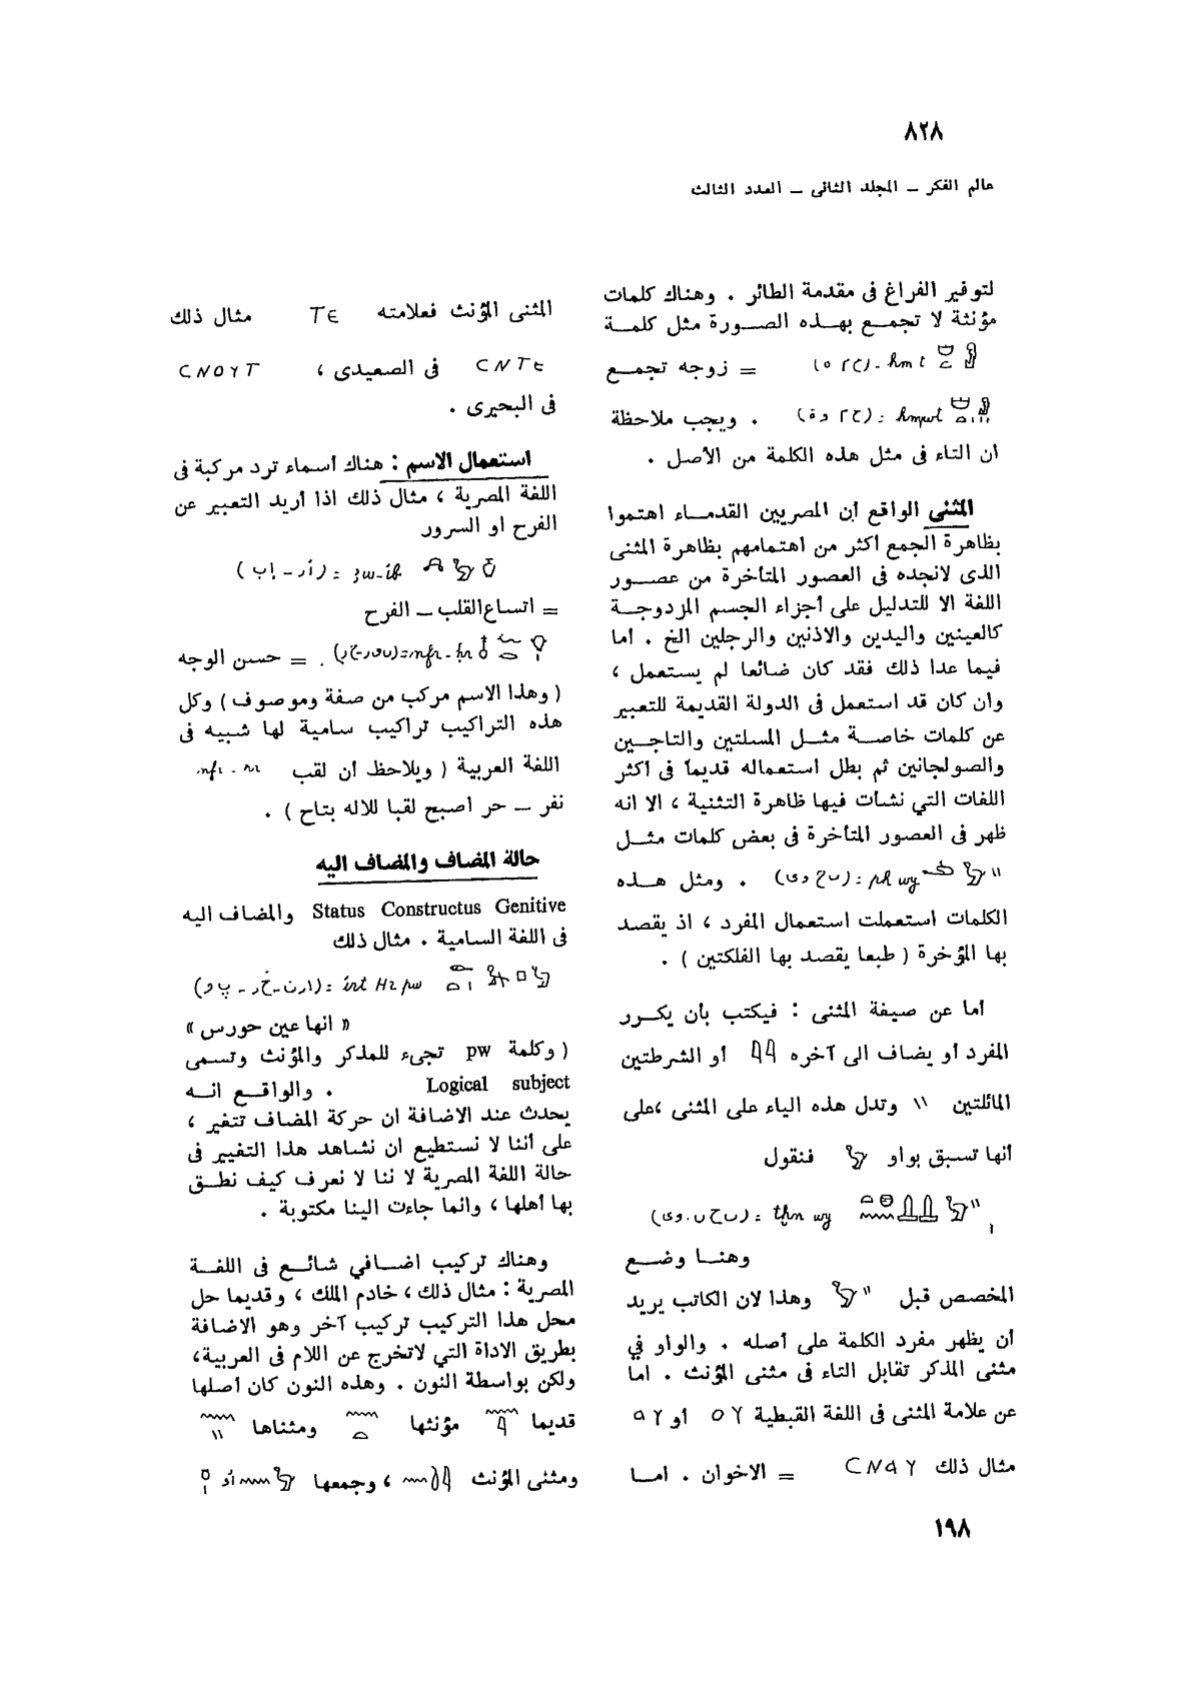 ٨٢٨
عالم الفكر – المجلد الثانى – العدد الثالث
لتوفير الفراغ فى مقدمة الطائر . وهناك كلمات
مؤنثة لا تجمع بهذه الصورة مثل كلمة
hmt = زوجه تجمع
. ويجب ملاحظة
ان التاء فى مثل هذه الكلمة من الأصل .
المثنى الواقع أن المصريين القدماء اهتموا
بظاهرة الجمع أكثر من اهتمامهم بظاهرة المثنى
الذى لانجده فى العصور المتأخرة من عصور
اللغة الا للتدليل على أجزاء الجسم المزدوجة
كالعينين واليدين والاذنين والرجلين الخ . أما
فيما عدا ذلك فقد كان ضائعا لم يستعمل ،
وان كان قد استعمل فى الدولة القديمة للتعبير
عن كلمات خاصة مثل المسلتين والتاجين
والصولجانين ثم بطل استعماله قديماً فى أكثر
اللغات التي نشأت فيها ظاهرة التثنية ، الا انه
ظهر فى العصور المتأخرة فى بعض كلمات مثل
. ومثل هذه
الكلمات استعملت استعمال المفرد ، اذ يقصد
بها المؤخرة ( طبعا يقصد بها الفلكتين ) .
أما عن صيغة المثنى : فيكتب بأن يكرر
المفرد أو يضاف الى آخره 𓇌 أو الشرطتين
المائلتين \\ وتدل هذه الياء على المثنى ،على
أنها تسبق بواو 𓅱 فنقول
وهنا وضع
المخصص قبل وهذا لان الكاتب يريد
أن يظهر مفرد الكلمة على أصله . والواو في
مثنى المذكر تقابل التاء فى مثنى المؤنث . اما
عن علامة المثنى فى اللغة القبطية ⲟⲩ أو ⲁⲩ
مثال ذلك ⲥⲛⲁⲩ = الاخوان . اما
المثنى المؤنث فعلامته ⲧⲉ مثال ذلك
ⲥⲛⲧⲉ فى الصعيدى ، ⲥⲛⲟⲩⲧ
فى البحيرى .
استعمال الاسم : هناك أسماء ترد مركبة فى
اللغة المصرية ، مثال ذلك اذا أريد التعبير عن
الفرح او السرور
ꜣw-ib
= اتساع القلب – الفرح
nfr-ḥr = حسن الوجه
( وهذا الاسم مركب من صفة وموصوف ) وكل
هذه التراكيب تراكيب سامية لها شبيه فى
اللغة العربية ( ويلاحظ أن لقب
نفر – حر اصبح لقبا للاله بتاح ) .
حالة المضاف والمضاف اليه
Status Constructus Genitive والمضاف اليه
فى اللغة السامية . مثال ذلك
« انها عين حورس »
( وكلمة pw تجىء للمذكر والمؤنث وتسمى
Logical subject . والواقع انه
يحدث عند الاضافة ان حركة المضاف تتغير ،
على أننا لا نستطيع ان نشاهد هذا التغيير فى
حالة اللغة المصرية لا ننا لا نعرف كيف نطق
بها أهلها ، وانما جاءت الينا مكتوبة .
وهناك تركيب اضافي شائع فى اللغة
المصرية : مثال ذلك ، خادم الملك ، وقديما حل
محل هذا التركيب تركيب آخر وهو الاضافة
بطريق الاداة التي لاتخرج عن اللام فى العربية،
ولكن بواسطة النون . وهذه النون كان أصلها
قديما مؤنثها ومثناها
ومثنى المؤنث ، وجمعها أو
١٩٨